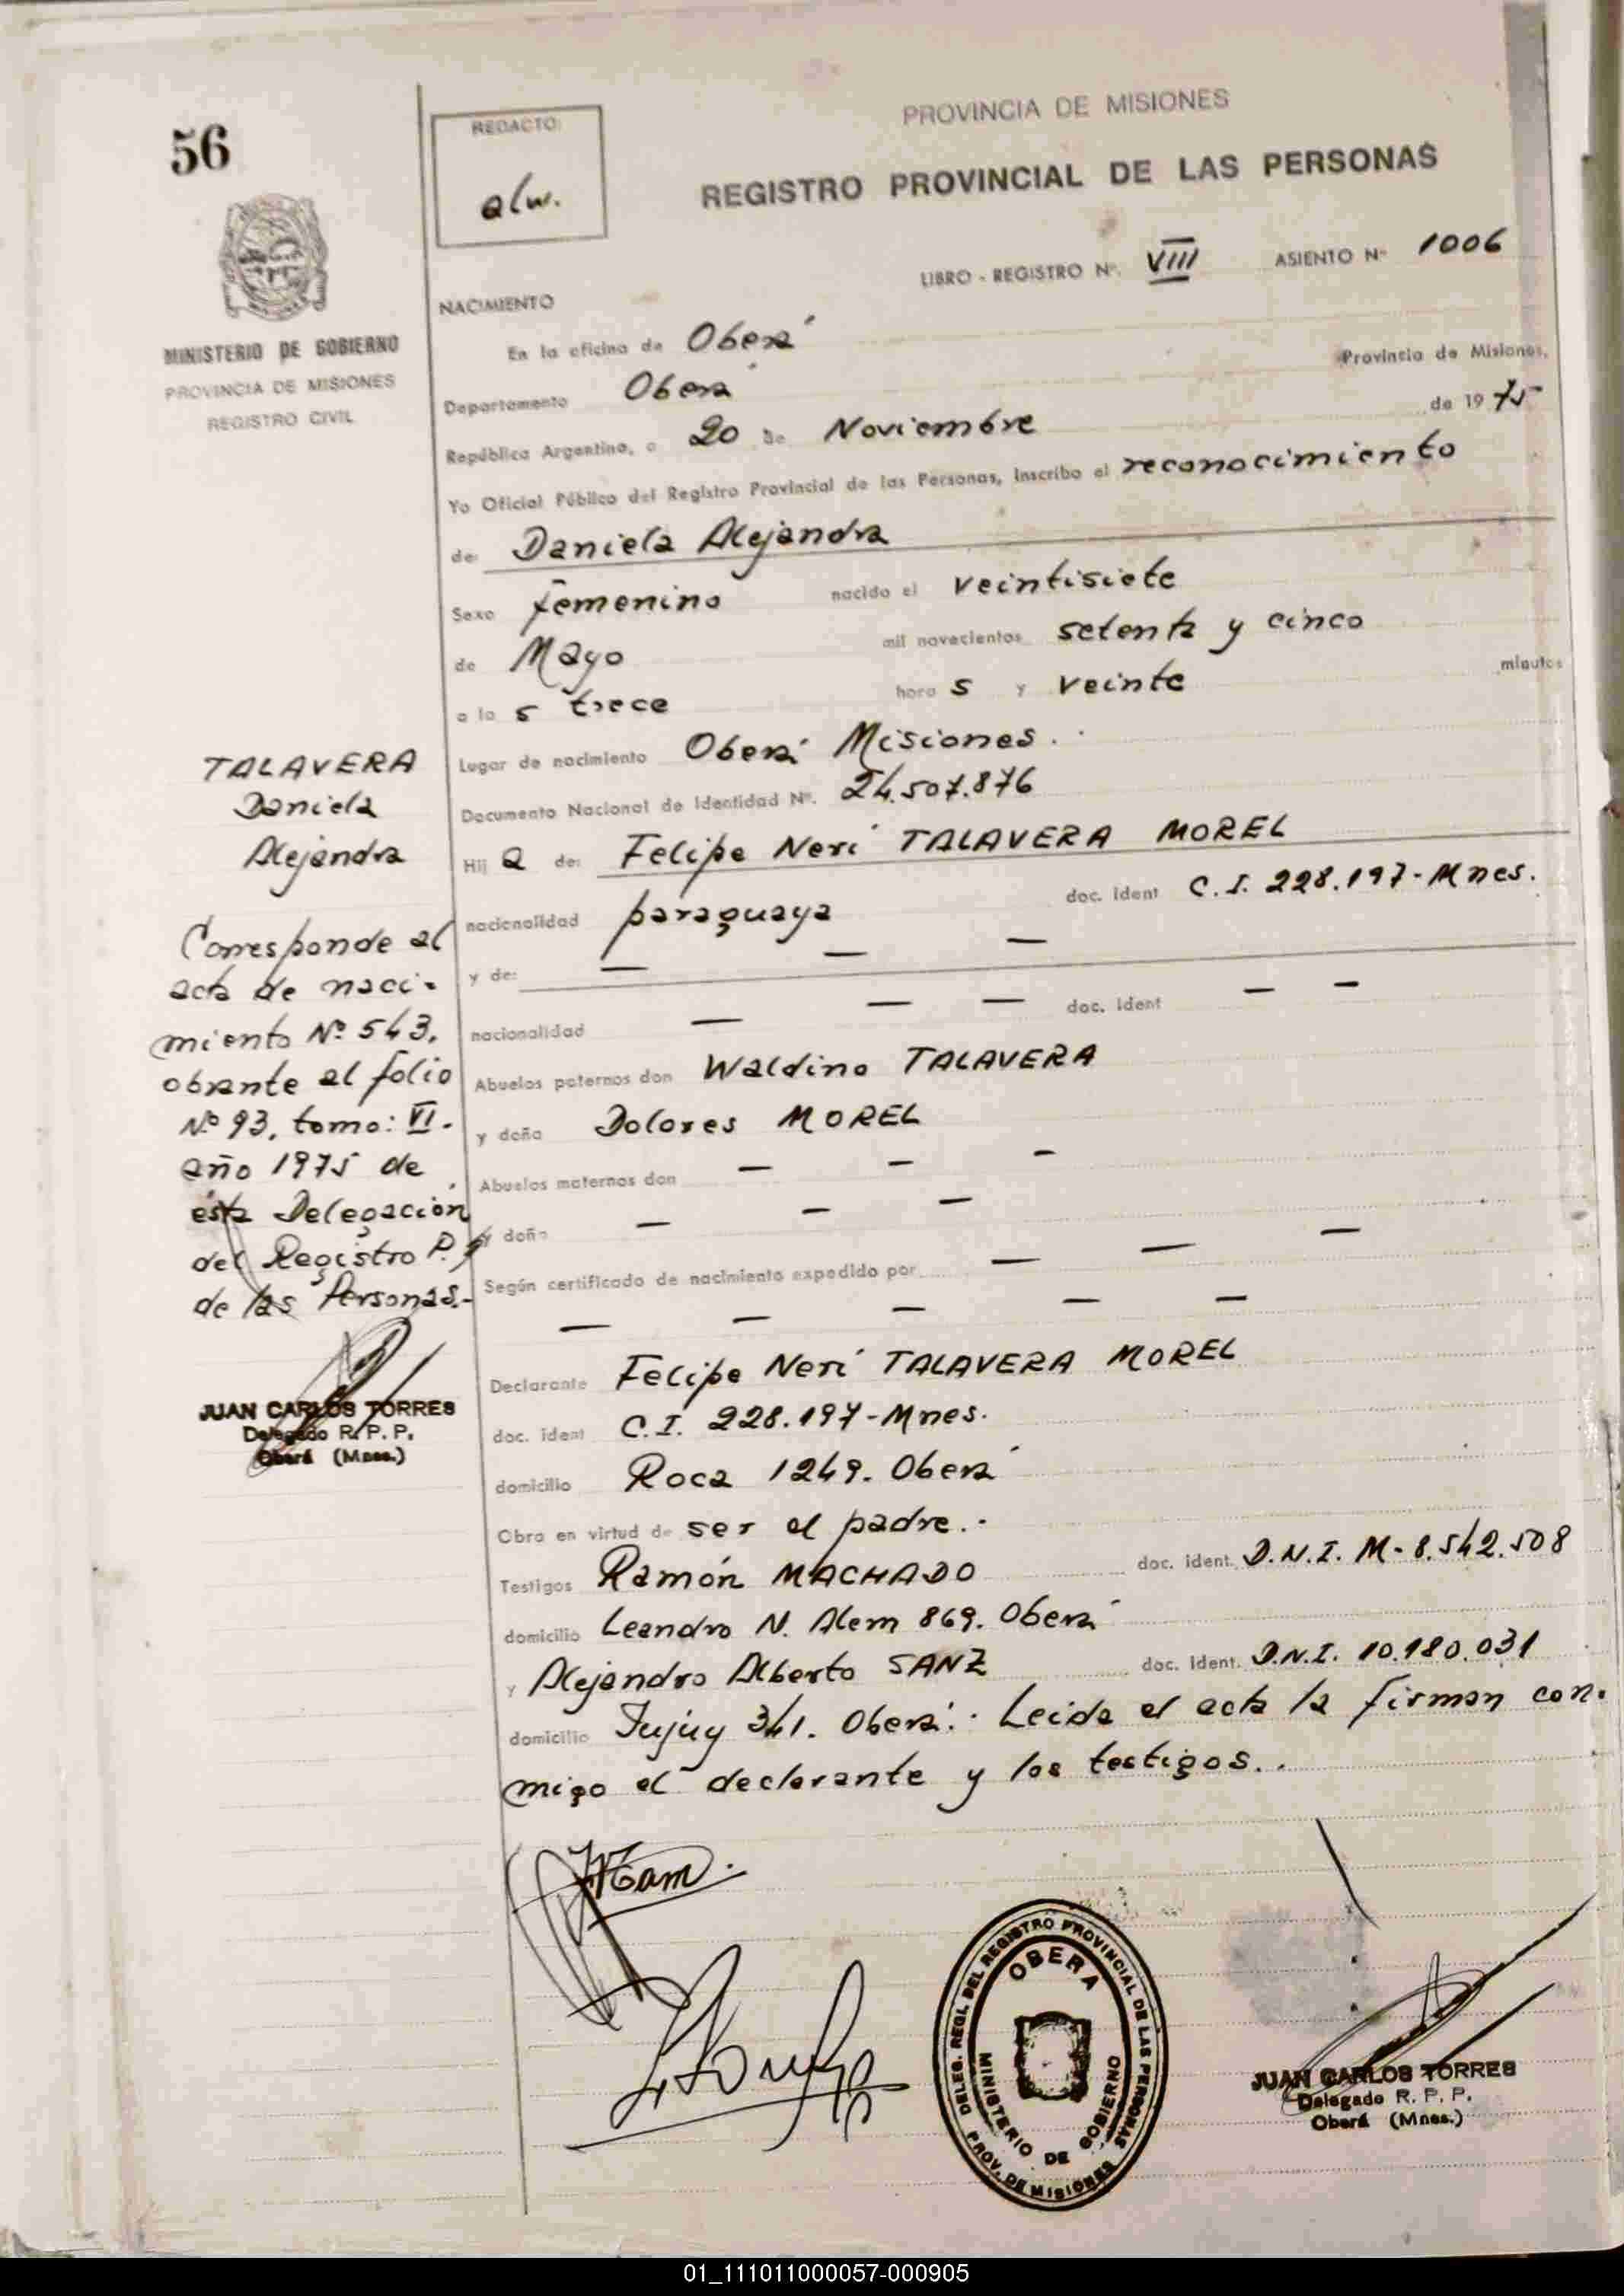 56
REDACTO:
alw.
PROVINCIA DE MISIONES
REGISTRO PROVINCIAL DE LAS PERSONAS
LIBRO - REGISTRO Nº. VIII ASIENTO Nº 1006
MINISTERIO DE GOBIERNO
PROVINCIA DE MISIONES
REGISTRO CIVIL
NACIMIENTO
En la oficina de Oberá
Provincia de Misiones,
Departamento Oberá
República Argentina, a 20 de Noviembre de 1975
Yo Oficial Público del Registro Provincial de las Personas, inscribo el reconocimiento
de: Daniela Alejandra
Sexo femenino nacido el veintisiete
de Mayo mil novecientos setenta y cinco
a la s trece hora s y veinte minutos
Lugar de nacimiento Oberá Misiones.
Documento Nacional de Identidad Nº. 24.507.876
Hij a de: Felipe Neri TALAVERA MOREL
nacionalidad paraguaya doc. ident C.I. 228.197-Mnes.
y de: — — —
nacionalidad — — — doc. ident — —
Abuelos paternos don Waldino TALAVERA
y doña Dolores MOREL
Abuelos maternos don — — —
y doña — — —
Según certificado de nacimiento expedido por — — —
— — — — —
Declarante Felipe Neri TALAVERA MOREL
doc. ident C.I. 228.197-Mnes.
domicilio Roca 1249. Oberá
Obra en virtud de ser el padre.-
Testigos Ramón MACHADO doc. ident. D.N.I. M-8.542.508
domicilio Leandro N. Alem 869. Oberá
y Alejandro Alberto SANZ doc. ident. D.N.I. 10.180.031
domicilio Jujuy 341. Oberá.- Leida el acta la firman con-
migo el declarante y los testigos..
TALAVERA
Daniela
Alejandra
Corresponde al
acta de naci-
miento Nº 543,
obrante al folio
Nº 93, tomo: VI.
año 1975 de
ésta Delegación
del Registro P.
de las Personas.-
JUAN CARLOS TORRES
Delegado R. P. P.
Oberá (Mnes.)
DELEG. REGL. DEL REGISTRO PROVINCIAL DE LAS PERSONAS
OBERA
MINISTERIO DE GOBIERNO
PROV. DE MISIONES
JUAN CARLOS TORRES
Delegado R. P. P.
Oberá (Mnes.)
01_111011000057-000905